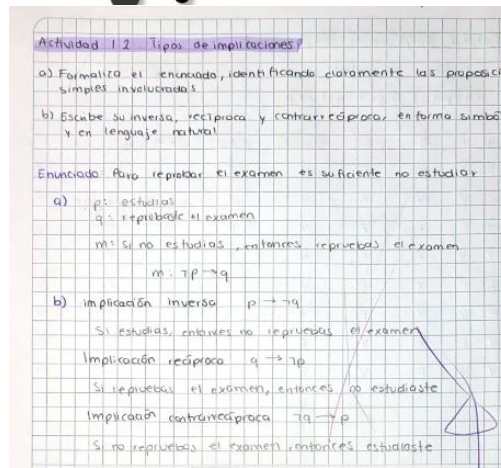 Actividad 1.2 Tipos de implicaciones
a) Formaliza el enunciado, identificando claramente las proposici
simples involucradas
b) Escribe su inversa, recíproca y contrarrecíproca, en forma simbó
y en lenguaje natural
Enunciado Para reprobar el examen es suficiente no estudiar
a) p: estudias
q: reprobaste el examen
m: si no estudias, entonces repruebas el examen
m: ¬p→q
b) implicación inversa p→¬q
Si estudias, entonces no repruebas el examen
Implicación recíproca q→¬p
Si repruebas el examen, entonces no estudiaste
Implicación contrarrecíproca ¬q→p
Si no repruebas el examen, entonces estudiaste